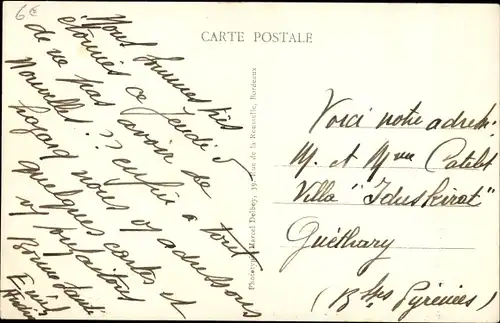 6€
CARTE POSTALE
Nous sommes très
étonnés ce Jeudi 5
de ne pas avoir de
Nouvelles ?? enfin à tout
hazard nous y adressons
quelques cartes et
y souhaitons
Bonne Santé
Photo Marcel Delboy, 39, Rue de la Rousselle, Bordeaux
Voici notre adres.
M. et Mme Catelot
Villa "Iduskirat"
Guéthary
(Bses Pyrénées)